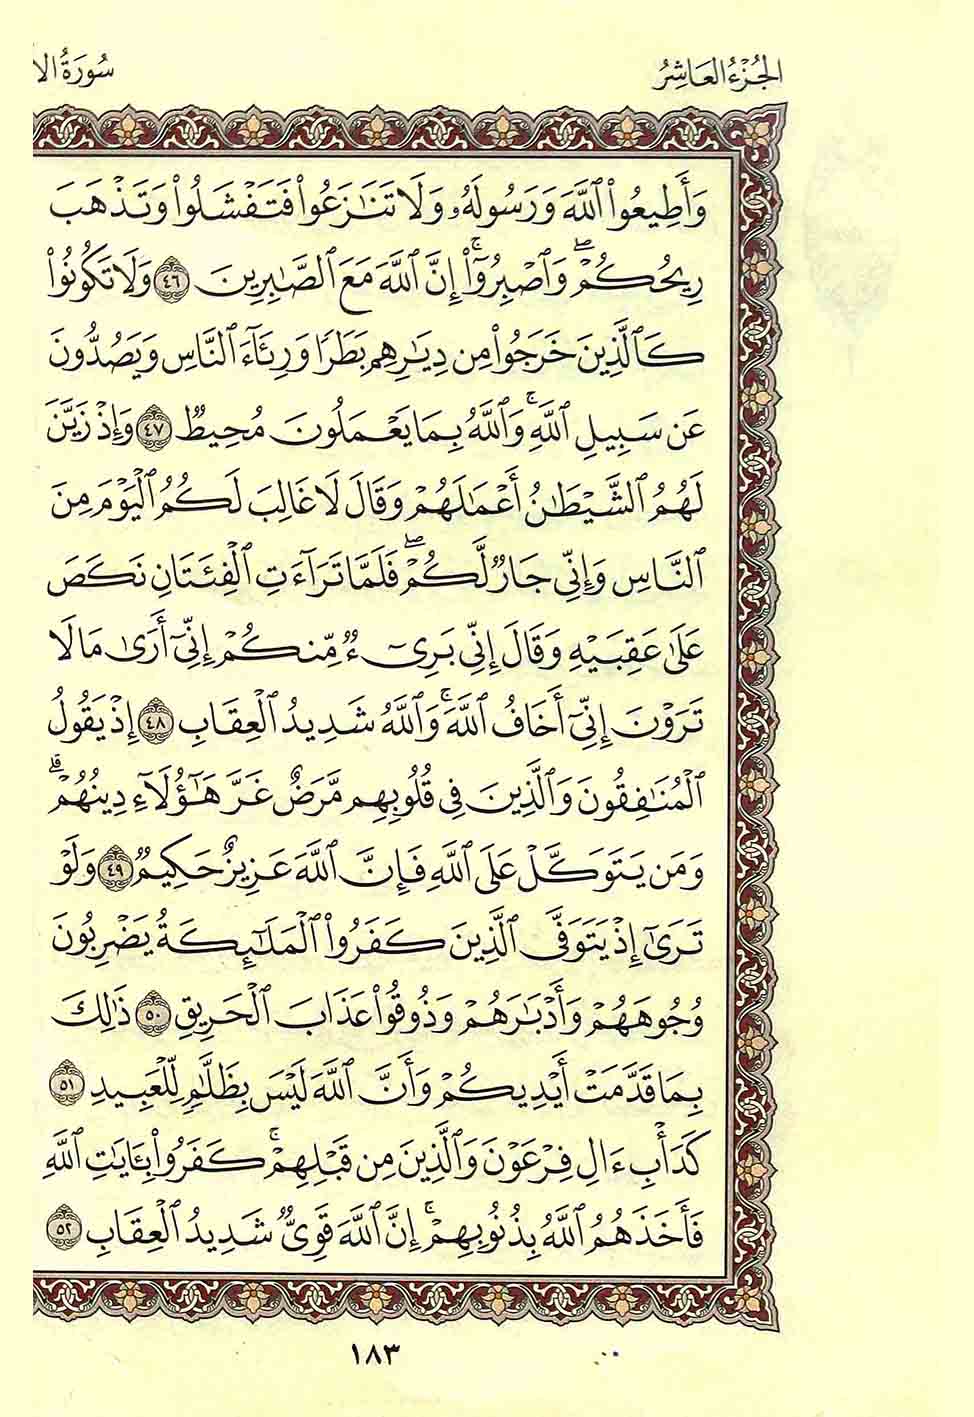 الجُزْءُ العَاشِرُ
سُورَةُ الأ
وَأَطِيعُوا۟ ٱللَّهَ وَرَسُولَهُۥ وَلَا تَنَٰزَعُوا۟ فَتَفْشَلُوا۟ وَتَذْهَبَ
رِيحُكُمْ ۖ وَٱصْبِرُوٓا۟ ۚ إِنَّ ٱللَّهَ مَعَ ٱلصَّٰبِرِينَ ٤٦ وَلَا تَكُونُوا۟
كَٱلَّذِينَ خَرَجُوا۟ مِن دِيَٰرِهِم بَطَرًا وَرِئَآءَ ٱلنَّاسِ وَيَصُدُّونَ
عَن سَبِيلِ ٱللَّهِ ۚ وَٱللَّهُ بِمَا يَعْمَلُونَ مُحِيطٌ ٤٧ وَإِذْ زَيَّنَ
لَهُمُ ٱلشَّيْطَٰنُ أَعْمَٰلَهُمْ وَقَالَ لَا غَالِبَ لَكُمُ ٱلْيَوْمَ مِنَ
ٱلنَّاسِ وَإِنِّى جَارٌ لَّكُمْ ۖ فَلَمَّا تَرَآءَتِ ٱلْفِئَتَانِ نَكَصَ
عَلَىٰ عَقِبَيْهِ وَقَالَ إِنِّى بَرِىٓءٌ مِّنكُمْ إِنِّىٓ أَرَىٰ مَا لَا
تَرَوْنَ إِنِّىٓ أَخَافُ ٱللَّهَ ۚ وَٱللَّهُ شَدِيدُ ٱلْعِقَابِ ٤٨ إِذْ يَقُولُ
ٱلْمُنَٰفِقُونَ وَٱلَّذِينَ فِى قُلُوبِهِم مَّرَضٌ غَرَّ هَٰٓؤُلَآءِ دِينُهُمْ ۗ
وَمَن يَتَوَكَّلْ عَلَى ٱللَّهِ فَإِنَّ ٱللَّهَ عَزِيزٌ حَكِيمٌ ٤٩ وَلَوْ
تَرَىٰٓ إِذْ يَتَوَفَّى ٱلَّذِينَ كَفَرُوا۟ ٱلْمَلَٰٓئِكَةُ يَضْرِبُونَ
وُجُوهَهُمْ وَأَدْبَٰرَهُمْ وَذُوقُوا۟ عَذَابَ ٱلْحَرِيقِ ٥٠ ذَٰلِكَ
بِمَا قَدَّمَتْ أَيْدِيكُمْ وَأَنَّ ٱللَّهَ لَيْسَ بِظَلَّٰمٍ لِّلْعَبِيدِ ٥١
كَدَأْبِ ءَالِ فِرْعَوْنَ وَٱلَّذِينَ مِن قَبْلِهِمْ ۚ كَفَرُوا۟ بِـَٔايَٰتِ ٱللَّهِ
فَأَخَذَهُمُ ٱللَّهُ بِذُنُوبِهِمْ ۚ إِنَّ ٱللَّهَ قَوِىٌّ شَدِيدُ ٱلْعِقَابِ ٥٢
١٨٣